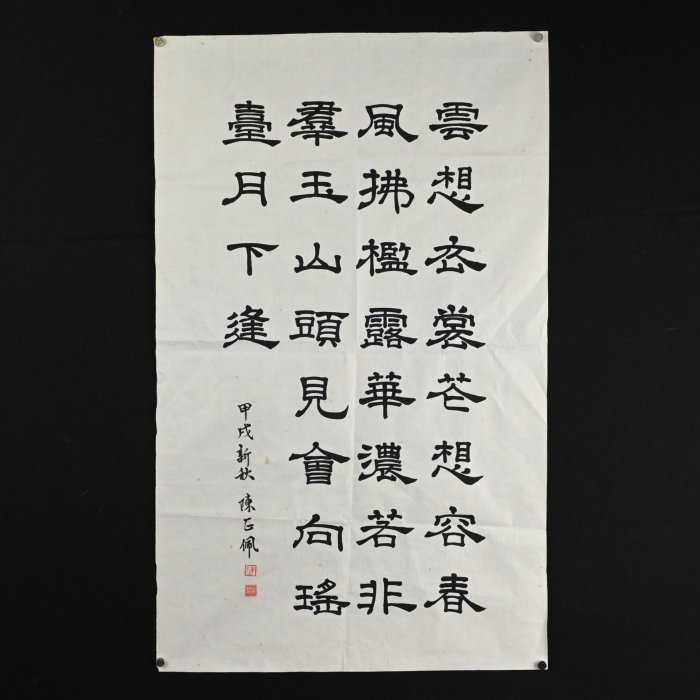 雲想衣裳花想容春
風拂檻露華濃若非
羣玉山頭見會向瑤
臺月下逢
甲戌新秋 陳正佩